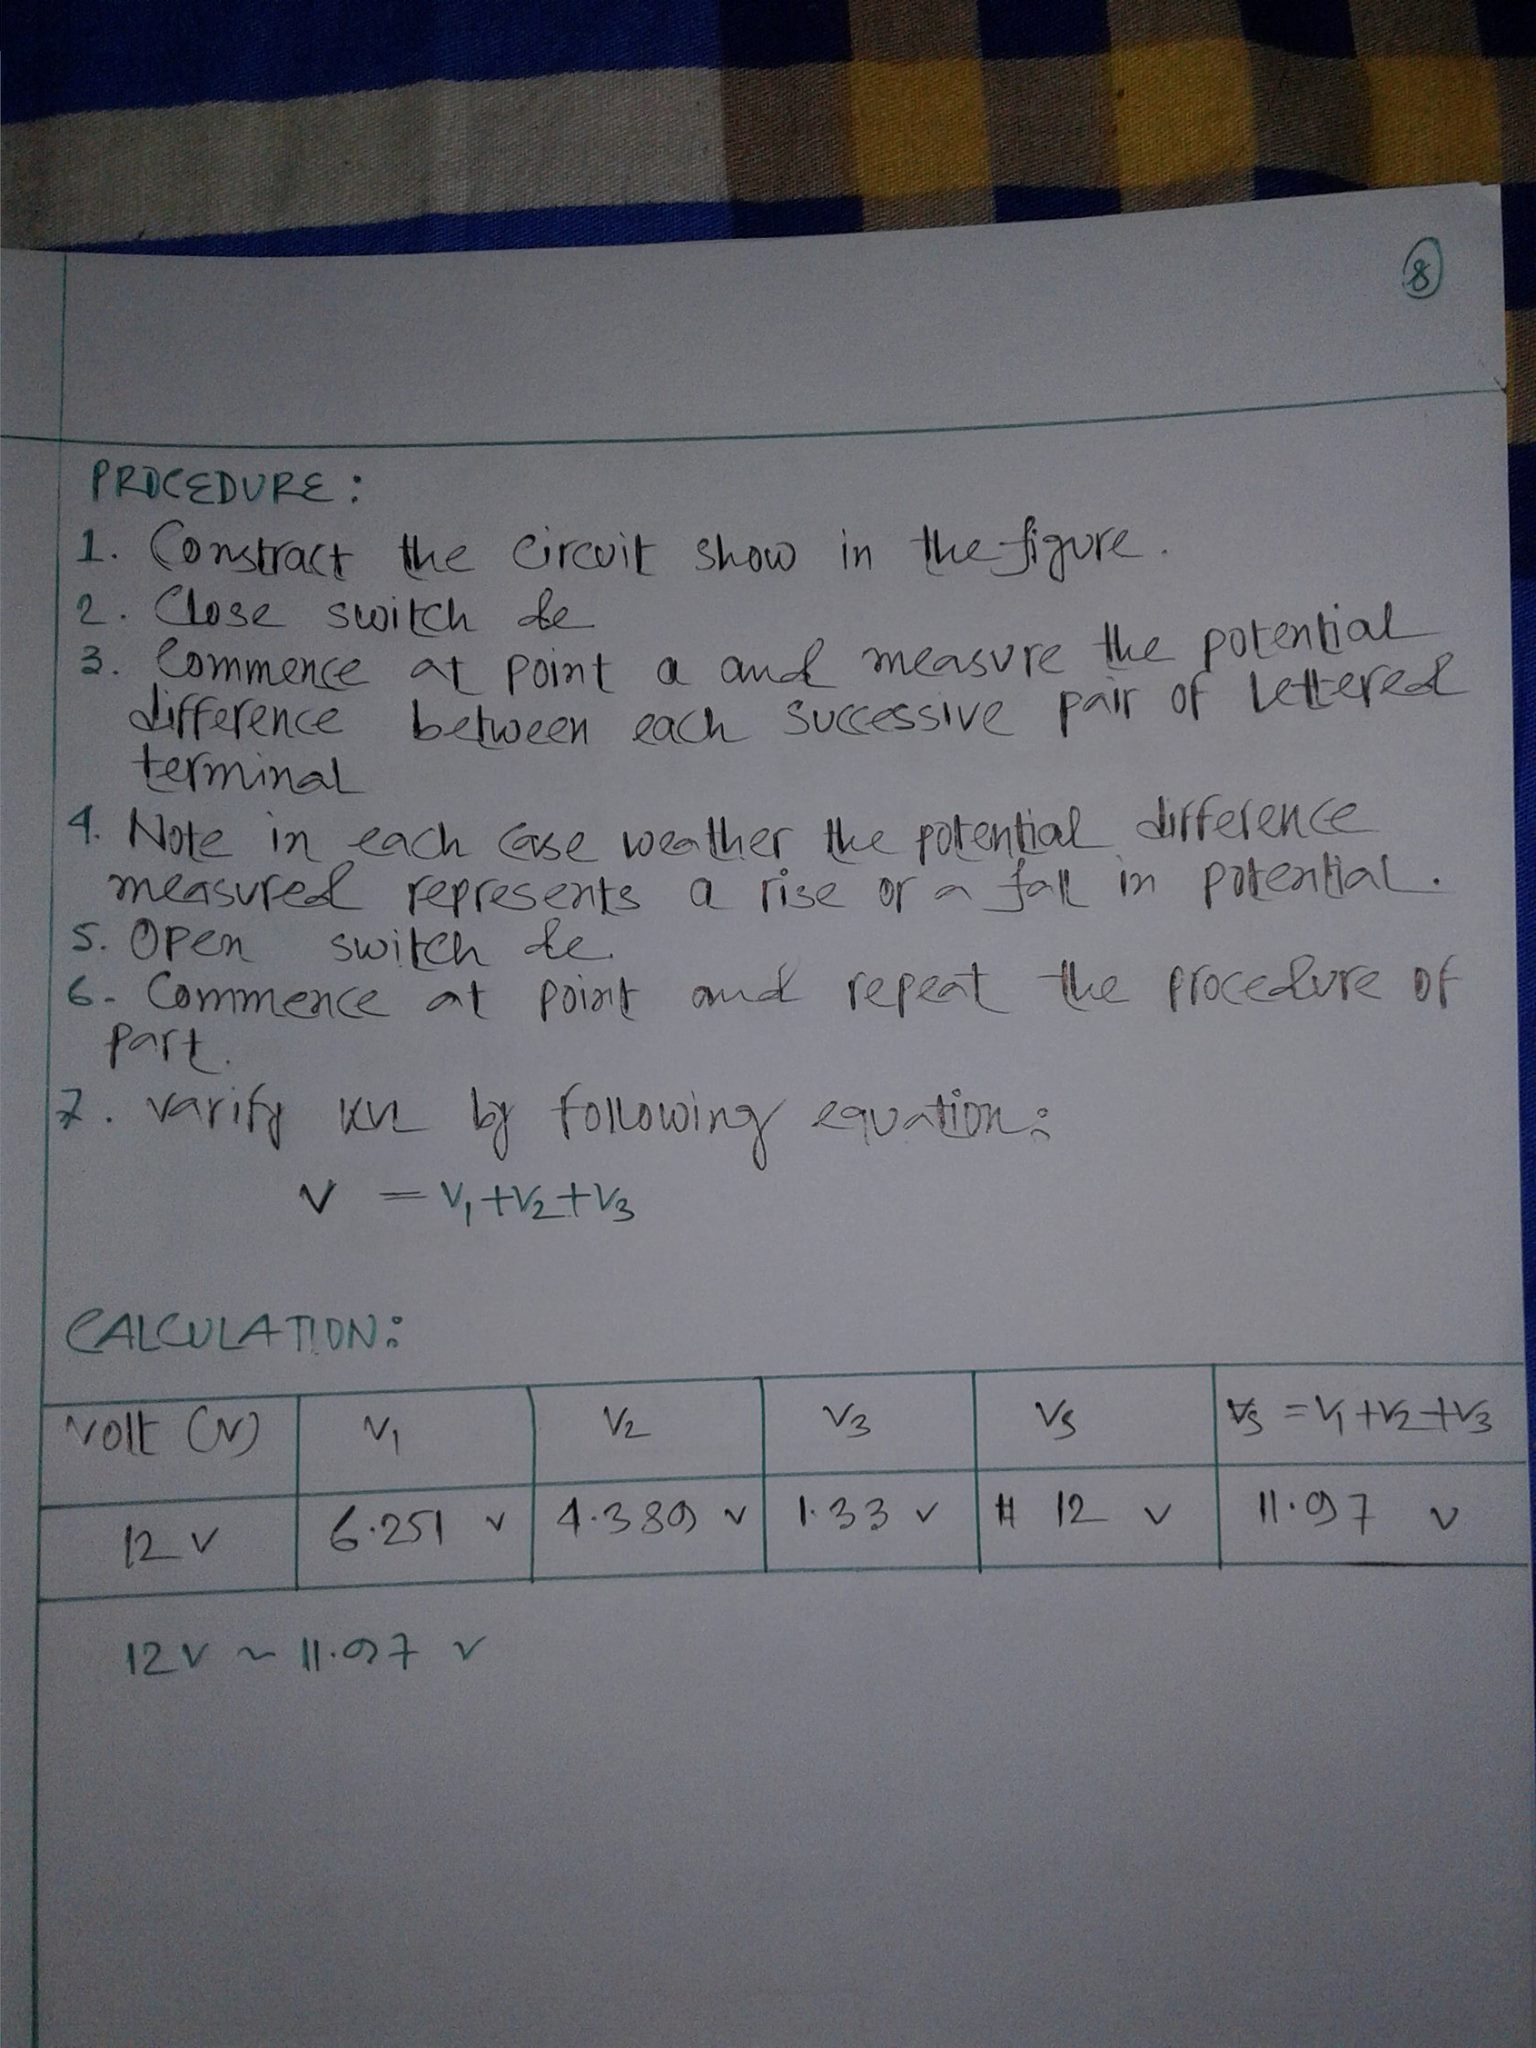 8
PROCEDURE:
1. Constract the circuit show in the figure.
2. Close switch de
3. Commence at point a and measure the potential
difference between each successive pair of lettered
terminal
4. Note in each case weather the potential difference
measured represents a rise or a fall in potential.
5. Open switch de.
6. Commence at point and repeat the procedure of
part.
7. varify KVL by following equation:
V = V₁+V₂+V₃
CALCULATION:
Volt (V) V₁ V₂ V₃ Vs Vs = V₁+V₂+V₃
12 V 6.251 V 4.389 V 1.33 V 12 V 11.97 V
12V ~ 11.97 V